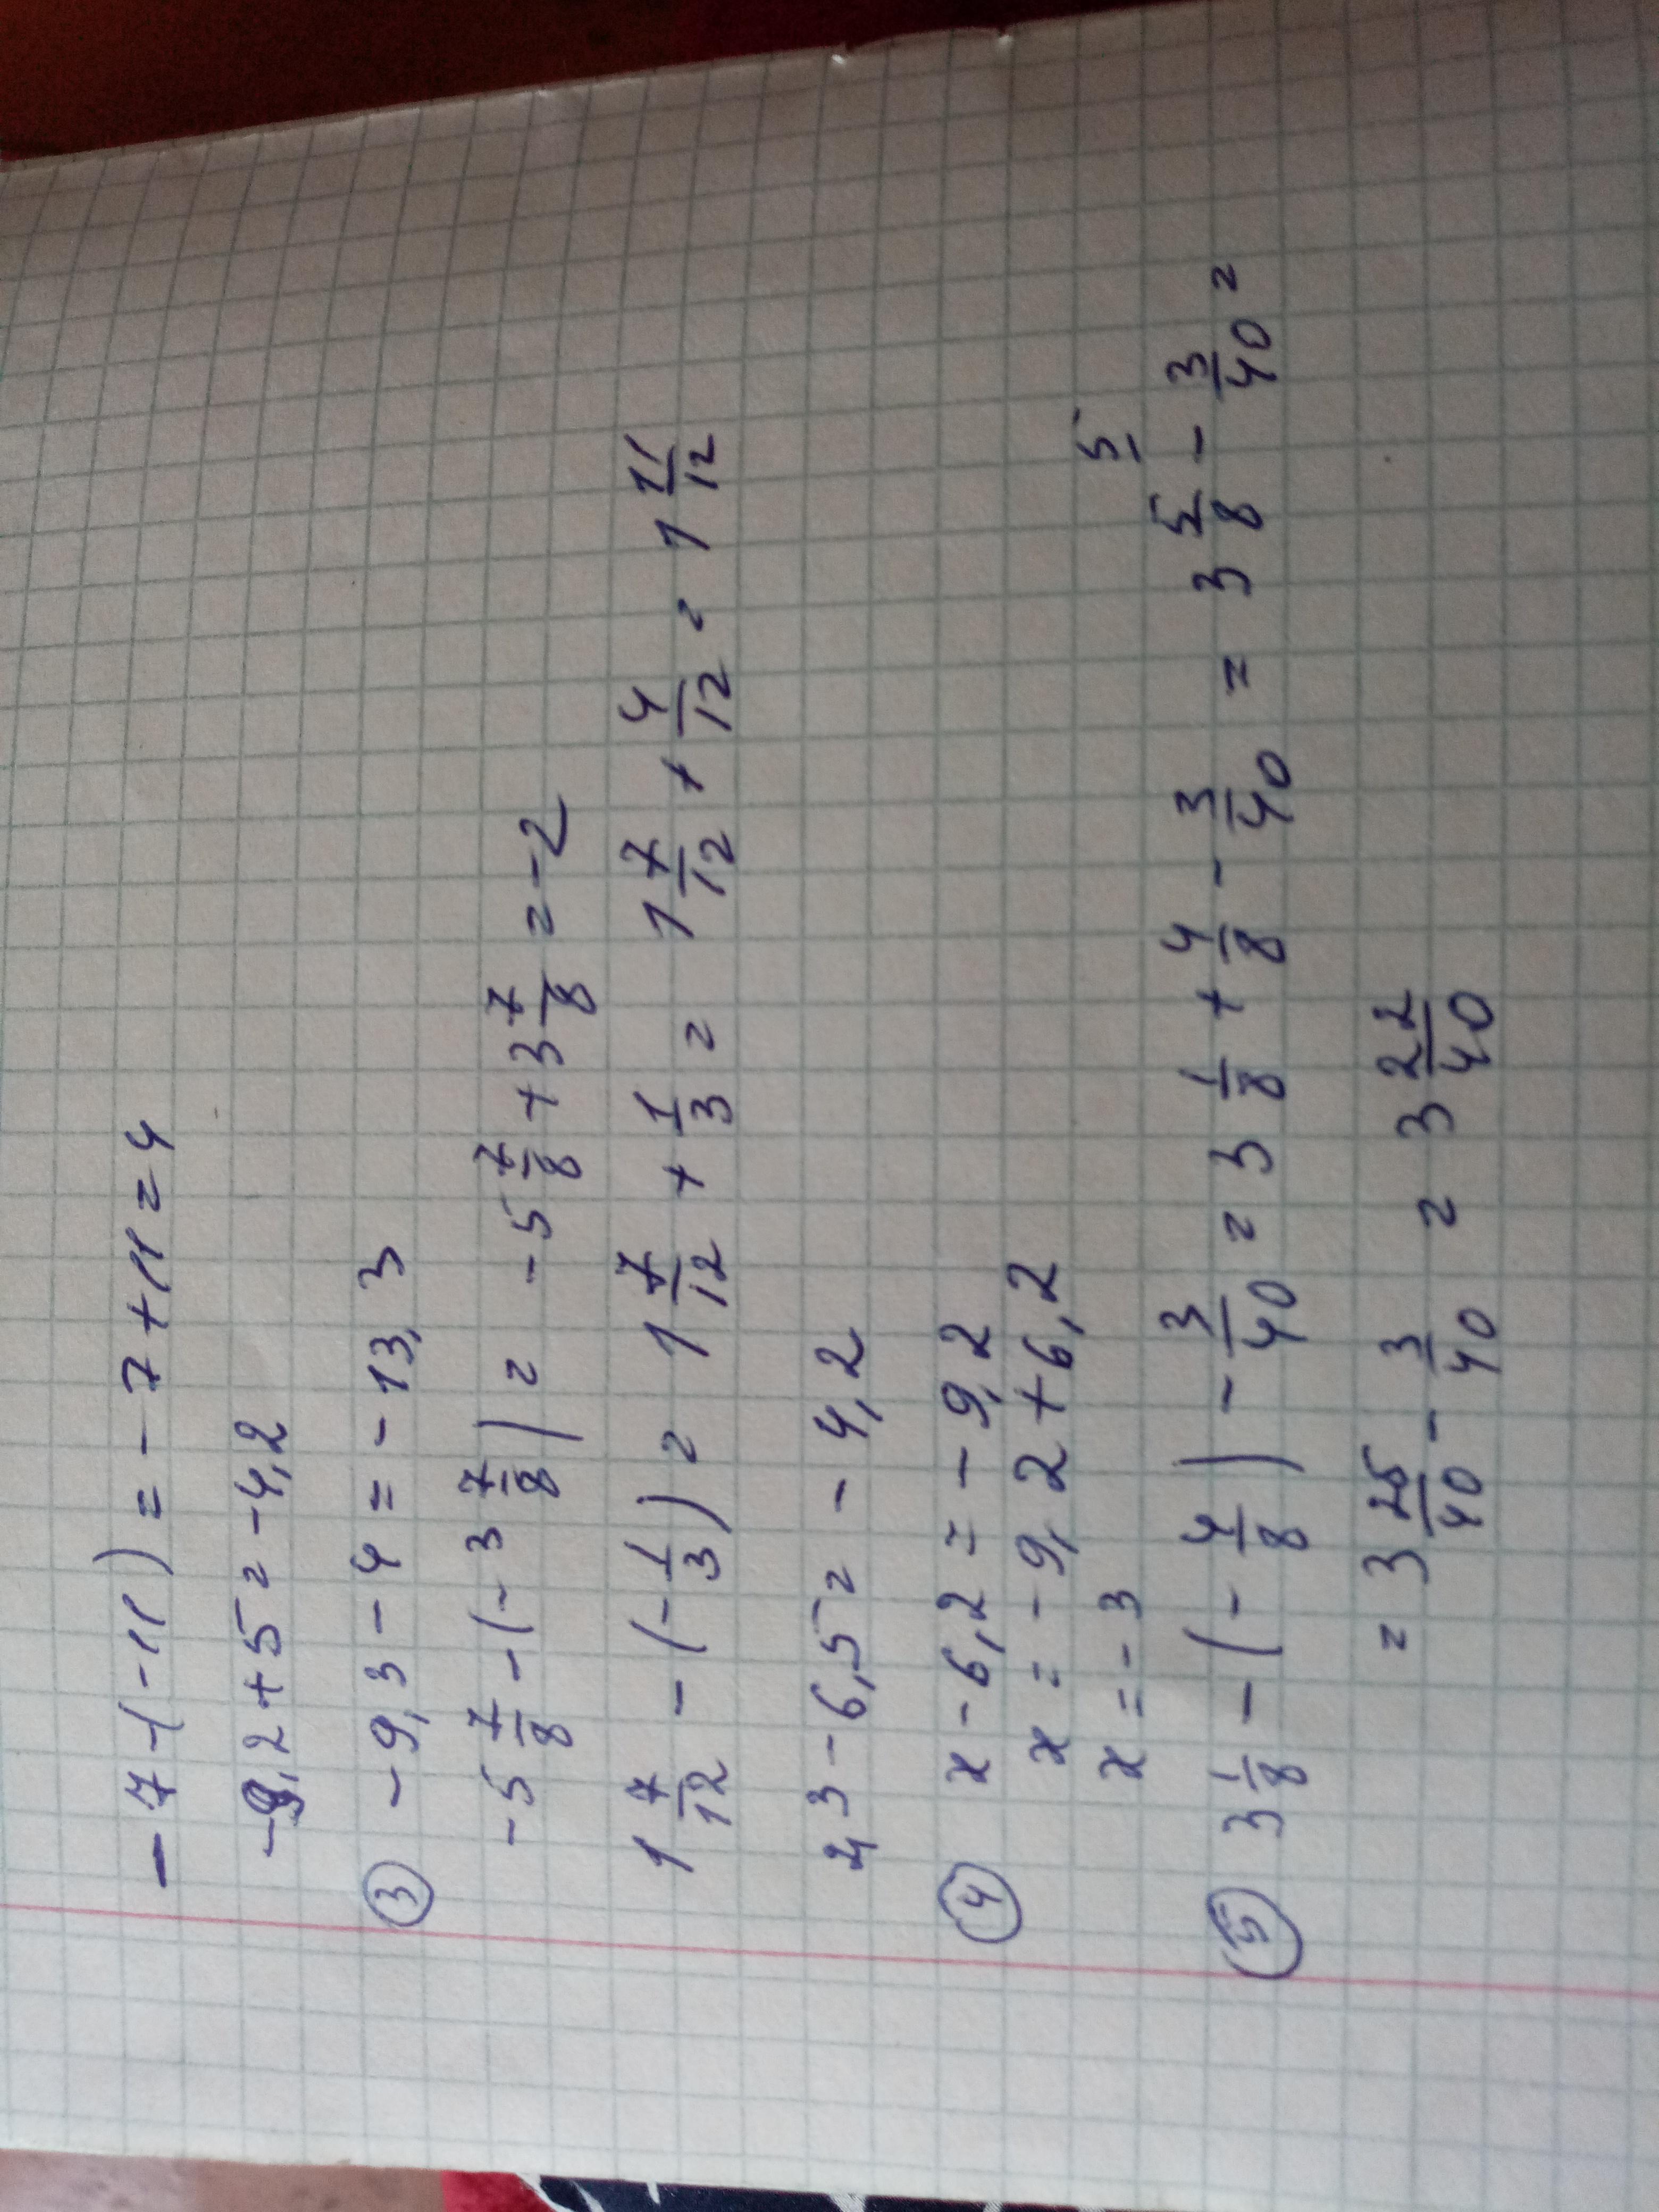 - 7 - (-11) = - 7 + 11 = 4
-9,2 + 5 = -4,2
③ - 9,3 - 4 = - 13,3
- 5 7/8 - (- 3 7/8) = - 5 7/8 + 3 7/8 = -2
1 7/12 - (- 1/3) = 1 7/12 + 1/3 = 1 7/12 + 4/12 = 1 11/12
2,3 - 6,5 = - 4,2
④ x - 6,2 = - 9,2
x = - 9,2 + 6,2
x = - 3
⑤ 3 1/8 - (- 4/8) - 3/40 = 3 1/8 + 4/8 - 3/40 = 3 5/8 - 3/40 =
= 3 25/40 - 3/40 = 3 22/40